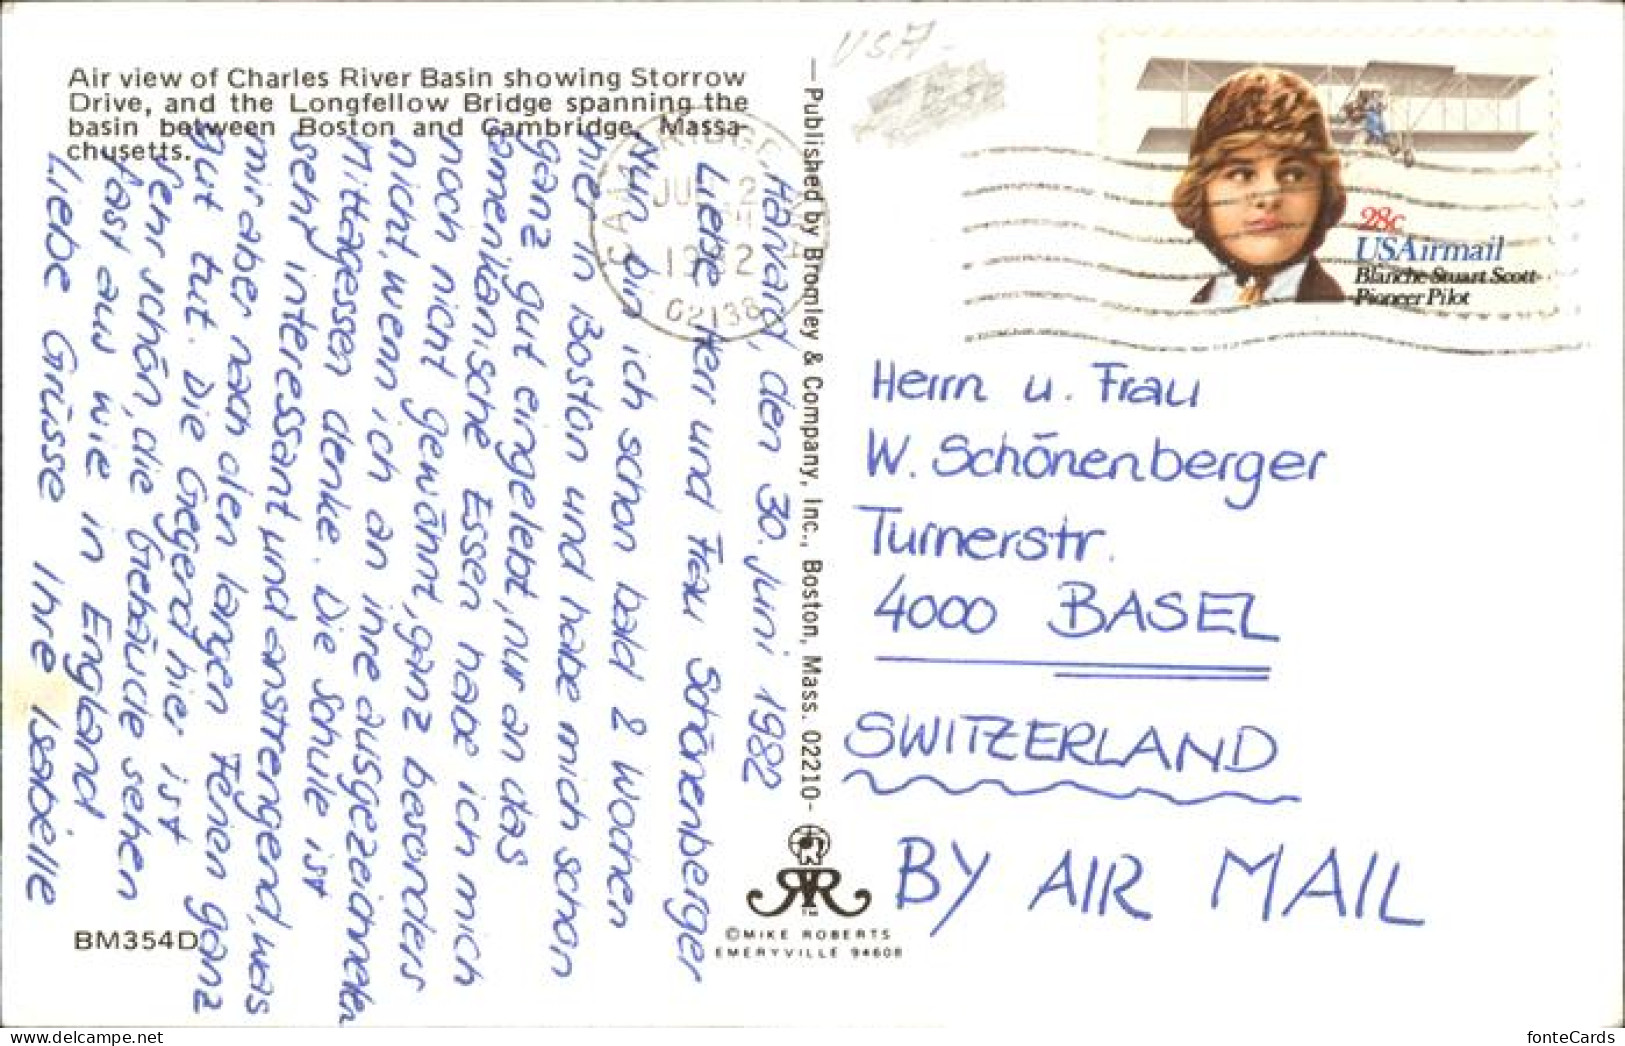 Air view of Charles River Basin showing Storrow
Drive, and the Longfellow Bridge spanning the
basin between Boston and Cambridge, Massa-
chusetts.
Harvard, den 30. Juni 1982
Liebe Herr und Frau Schönenberger
Nun bin ich schon bald 2 Wochen
hier in Boston und habe mich schon
ganz gut eingelebt, nur an das
amerikanische Essen habe ich mich
noch nicht gewöhnt, ganz besonders
nicht, wenn ich an ihre ausgezeichneten
Mittagessen denke. Die Schule ist
sehr interessant und anstrengend, was
mir aber nach den langen Ferien ganz
gut tut. Die Gegend hier ist ganz
sehr schön, die Gebäude sehen
fast aus wie in England.
Liebe Grüsse Ihre Isabelle
BM354D
—Published by Bromley & Company, Inc., Boston, Mass. 02210-
©MIKE ROBERTS
EMERYVILLE 94608
USA
CAMBRIDGE, MA
JUL 2
1982
02138
28c
USAirmail
Blanche Stuart Scott
Pioneer Pilot
Herrn u. Frau
W. Schönenberger
Turnerstr.
4000 BASEL
SWITZERLAND
BY AIR MAIL
fonteCards